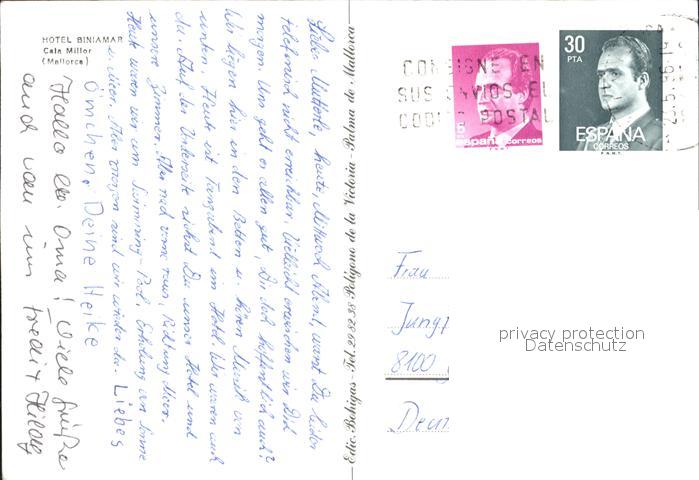 HOTEL BINIAMAR
Cala Millor
(Mallorca)
Liebe Mutterle, heute, Mittwoch Abend, warst Du leider
telefonisch nicht erreichbar. Vielleicht erreichen wir Dich
morgen. Uns geht es allen gut, Dir doch hoffentlich auch?
Wir liegen hier in den Betten u. hören Musik von
unten. Heute ist Tanzabend im Hotel. Wir waren auch
da. Auf der Vorderseite siehst Du unser Hotel und
unsere Zimmer. Alle nach vorne raus, Richtung Meer.
Heute waren wir am Swimming-Pool, Erholung von Sonne
u. Meer. Aber morgen sind wir wieder da. Liebes
Ömchen, Deine Heike
Hallo Oma! Viele Grüße
auch von uns Fredi + Hilde
Edic. Bohigas - Tel. 22 22 85 Poligono de la Victoria - Palma de Mallorca
CONSIGNE EN
SUS ENVIOS EL
CODIGO POSTAL
5
España correos
F.N.M.T.
30
PTA
ESPAÑA
CORREOS
F.N.M.T.
Frau
8100
privacy protection
Datenschutz